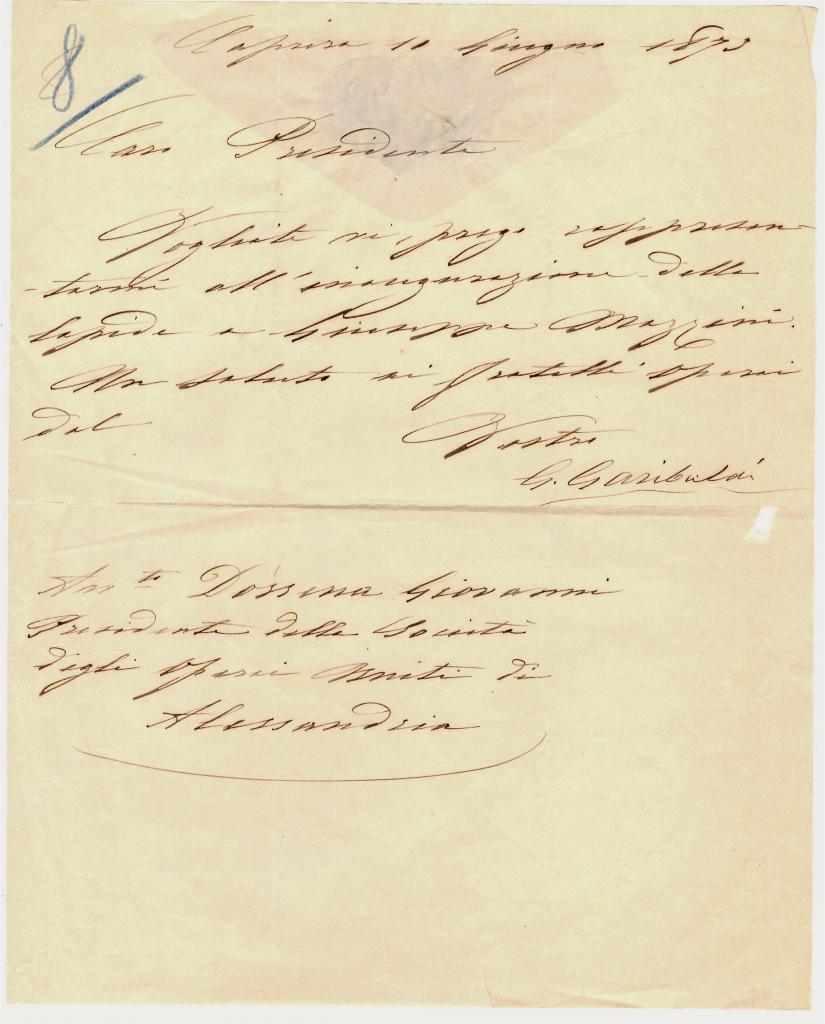 8
Caprera 10 Giugno 1873
Caro Presidente
Vogliate vi prego rappresen-
-tarmi all'inaugurazione della
lapide a Giuseppe Mazzini.
Un saluto ai fratelli operai
dal Vostro
G. Garibaldi
Dossena Giovanni
Presidente della Società
degli operai uniti di
Alessandria